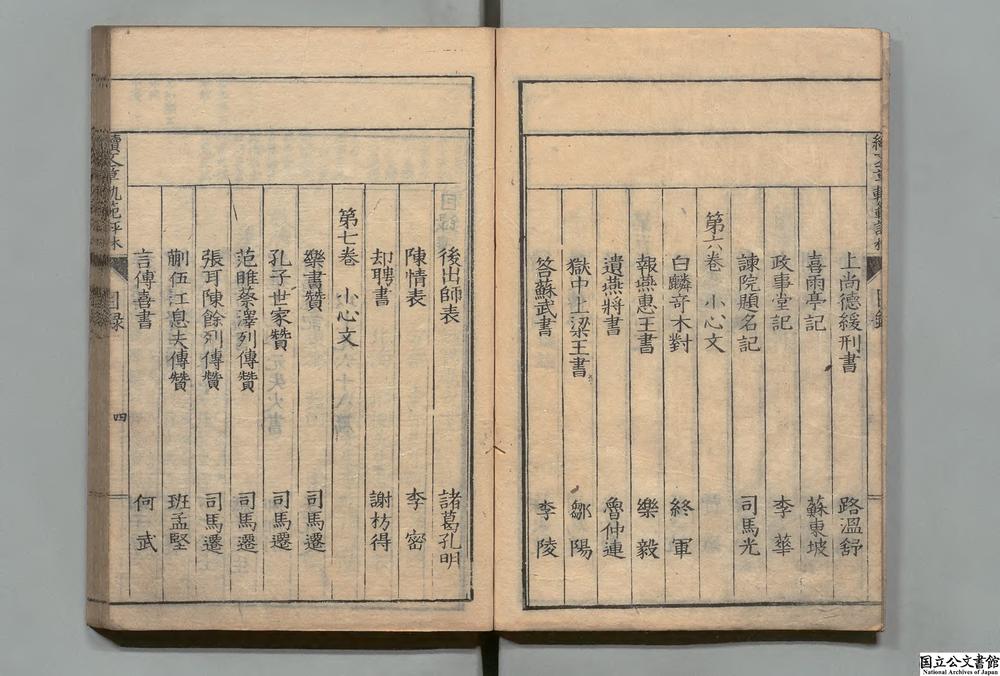 上尚德緩刑書 路溫舒
喜雨亭記 蘇東坡
政事堂記 李華
諫院題名記 司馬光
第六卷 小心文
白麟奇木對 終軍
報燕惠王書 樂毅
遺燕將書 魯仲連
獄中上梁王書 鄒陽
答蘇武書 李陵
後出師表 諸葛孔明
陳情表 李密
却聘書 謝枋得
第七卷 小心文
樂書贊 司馬遷
孔子世家贊 司馬遷
范睢蔡澤列傳贊 司馬遷
張耳陳餘列傳贊 司馬遷
蒯伍江息夫傳贊 班孟堅
言傳喜書 何武
續文章軌范評林 目録 四
国立公文書館
National Archives of Japan